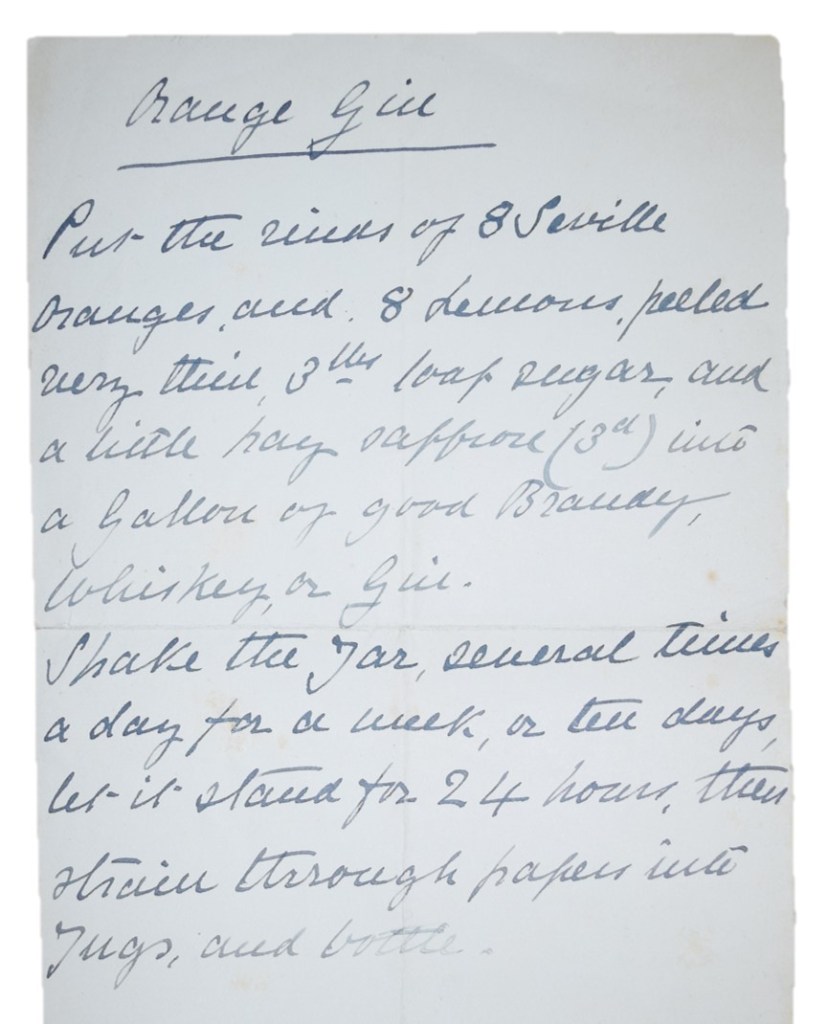 Orange Gin
Put the rinds of 8 Seville
oranges, and 8 Lemons, peeled
very thin, 3 lbs loaf sugar, and
a little hay saffron (3d) into
a Gallon of good Brandy,
Whiskey, or Gin.
Shake the Jar, several times
a day for a week, or ten days,
let it stand for 24 hours, then
strain through papers into
Jugs, and bottle.